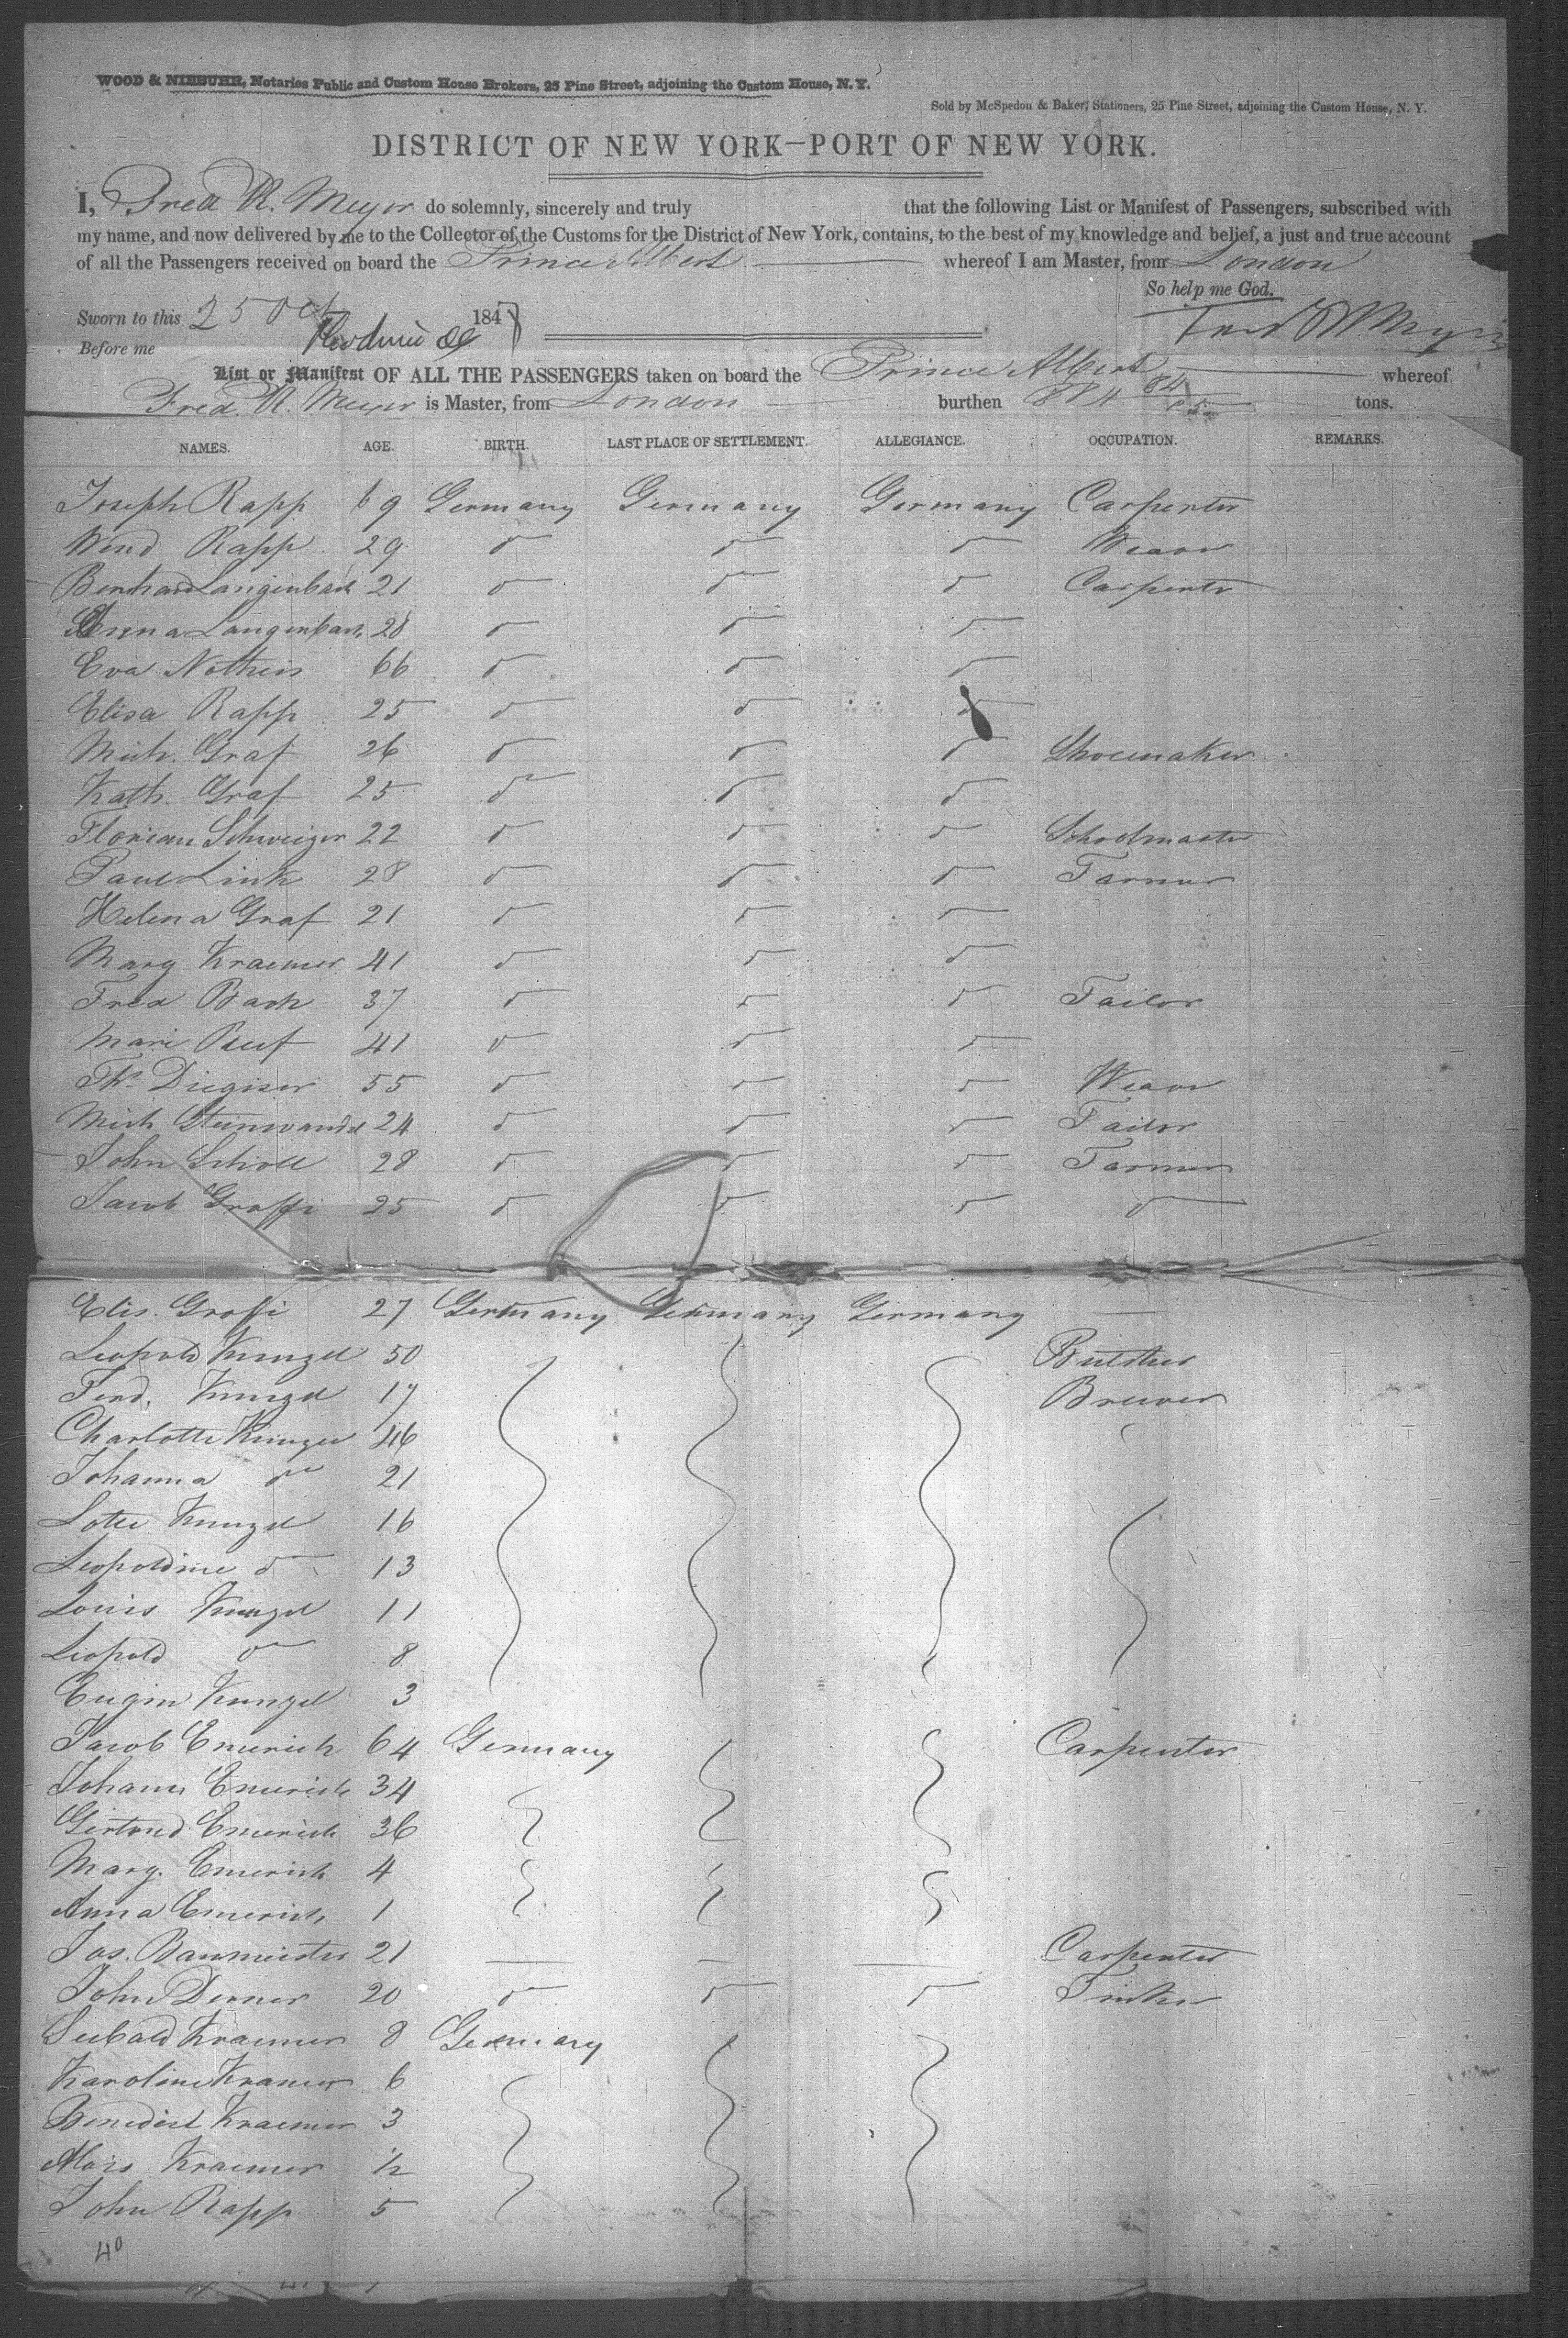 WOOD & NIEBUHR, Notaries Public and Custom House Brokers, 25 Pine Street, adjoining the Custom House, N.Y.
Sold by McSpedon & Baker, Stationers, 25 Pine Street, adjoining the Custom House, N. Y.
DISTRICT OF NEW YORK—PORT OF NEW YORK.
I, Fred R. Meyer do solemnly, sincerely and truly that the following List or Manifest of Passengers, subscribed with
my name, and now delivered by me to the Collector of the Customs for the District of New York, contains, to the best of my knowledge and belief, a just and true account
of all the Passengers received on board the Prince Albert whereof I am Master, from London
So help me God.
Sworn to this 25 Oct 1848
Fred R Meyer
Before me
List or Manifest OF ALL THE PASSENGERS taken on board the Prince Albert whereof
Fred. R. Meyer is Master, from London burthen 884 84/95 tons.
NAMES. AGE. BIRTH. LAST PLACE OF SETTLEMENT. ALLEGIANCE. OCCUPATION. REMARKS.
Joseph Rapp 69 Germany Germany Germany Carpenter
Wend Rapp 29 do do do Weaver
Bernhard Langenbach 21 do do do Carpenter
Langenbach 28 do do do
Eva Notheis 66 do do do
Elisa Rapp 25 do do do
Mich. Graf 26 do do do Shoemaker
Kath. Graf 25 do do do
Florian Schweizer 22 do do do Schoolmaster
Paul Link 28 do do do Farmer
Helena Graf 21 do do do
Marg Kraemer 41 do do do
Fred Bach 37 do do do Tailor
Mari 41 do do do
Th. Diegiser 55 do do do Weaver
Mich Steinwandel 24 do do do Tailor
John Scholl 28 do do do Farmer
Jacob Groffi 25 do do do do
Elis. Groffi 27 Germany Germany Germany
Leopold Kunzel 50 Butcher
Ferd. Kunzel 17 Brewer
Charlotte Kunzel 46
Johanna do 21
Lotte Kunzel 16
Leopoldine do 13
Louis Kunzel 11
Leopold do 8
Eugin Kunzel 3
Jacob Emerich 64 Germany Carpenter
Johann Emerich 34
Gertrud Emerich 36
Marg. Emerich 4
Anna Emerich 1
Jos. Baumeister 21 Carpenter
John Derner 20 do do do
Seibald Kraemer 8 Germany
Karoline Kramer 6
Benedict Kraemer 3
Alois Kraemer 1/2
John Rapp 5
40